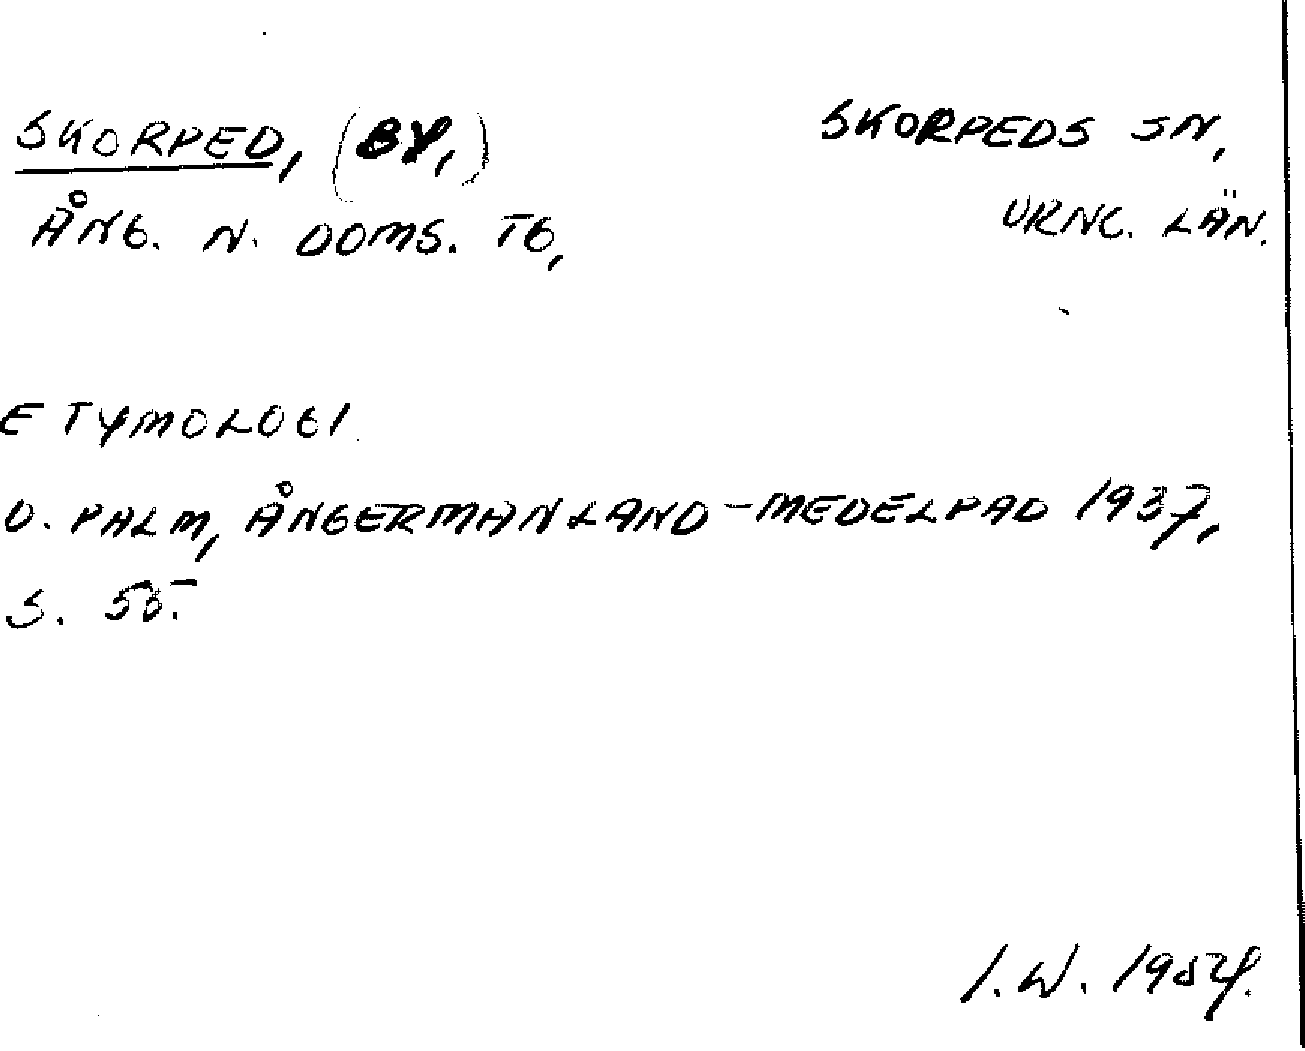 SKORPED, (BY,)
SKORPEDS SN,
ÅNG. N. DOMS. TG,
VRNL. LÄN.
ETYMOLOGI.
D. PALM, ÅNGERMANLAND-MEDELPAD 1937,
S. 55.
I.W. 1954.